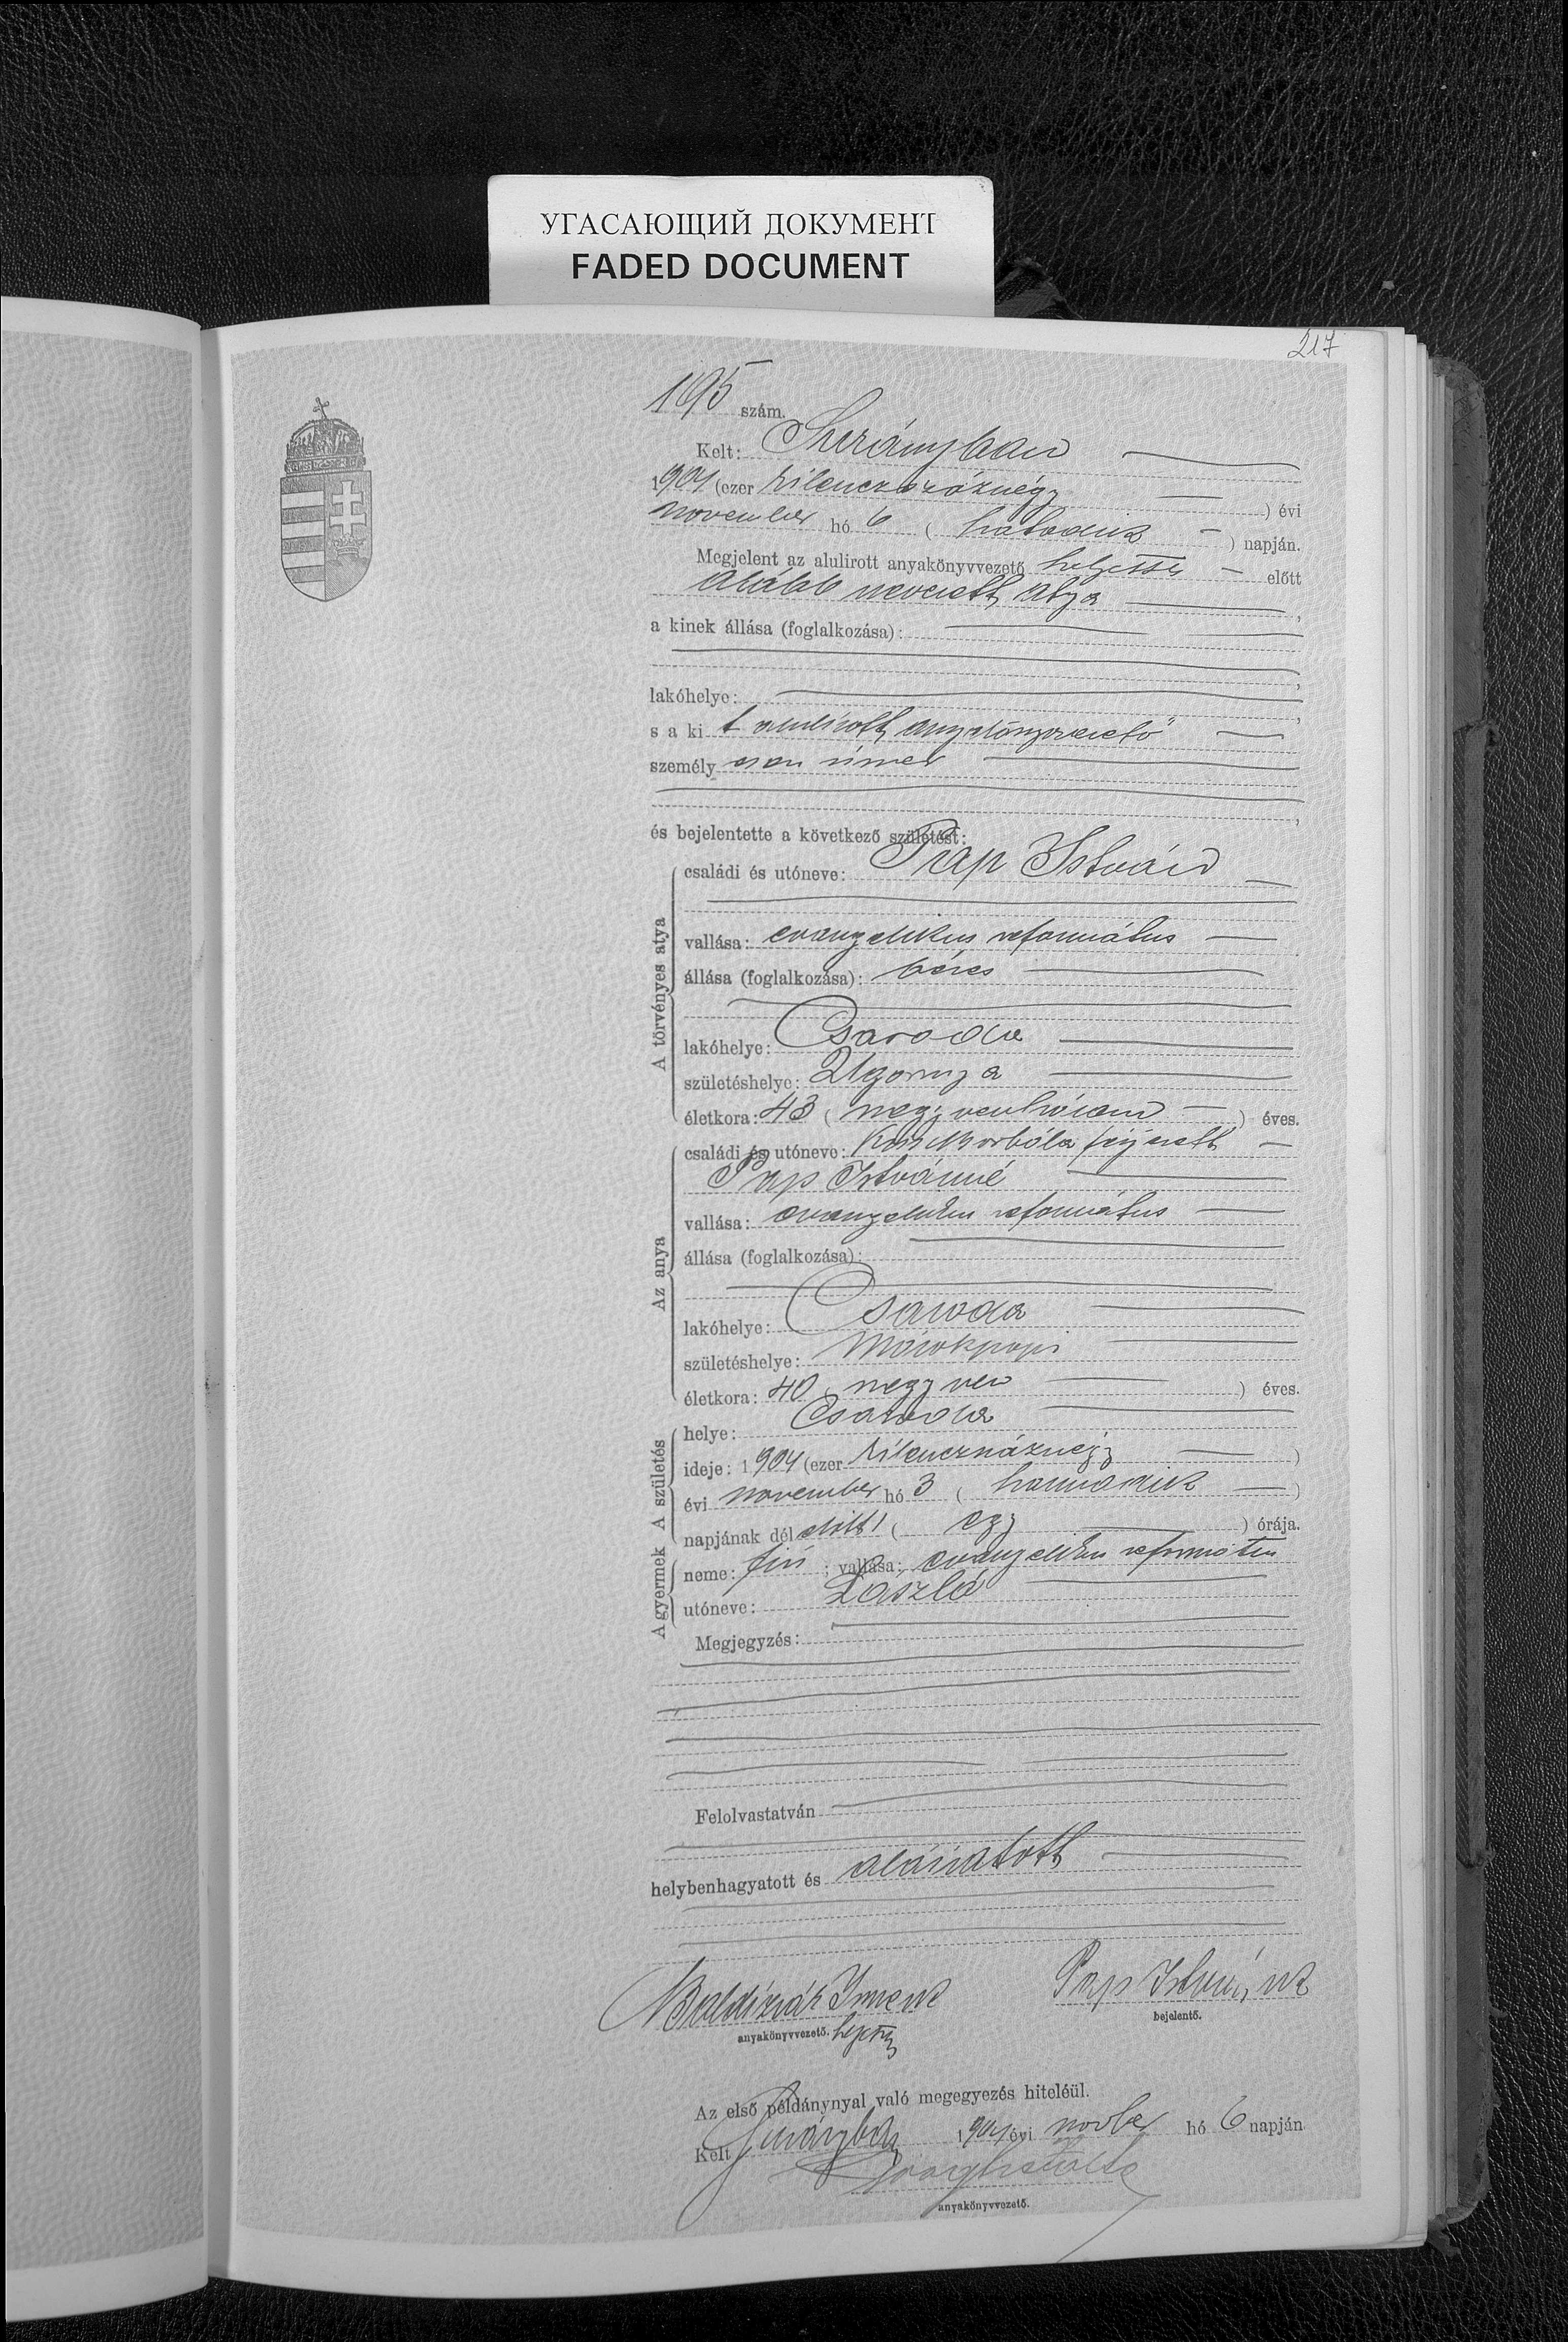 УГАСАЮЩИЙ ДОКУМЕНТ
FADED DOCUMENT
217
195 szám.
Kelt: Surányban
1904 (ezer kilenczszáznégy ) évi
november hó 6 ( hatodik ) napján.
Megjelent az alulirott anyakönyvvezető helyettes előtt
alább nevezett atya ,
a kinek állása (foglalkozása):
lakóhelye: ,
s a ki t alulirott anyakönyvvezető
személyesen ismer ,
és bejelentette a következő születést:
A törvényes atya
családi és utóneve: Pap István
vallása: evangelikus református
állása (foglalkozása): béres
lakóhelye: Csaroda
születéshelye: Ugornya
életkora: 43 ( negyvenhárom ) éves.
Az anya
családi és utóneve: Kiss Borbála férjezett
Pap Istvánné
vallása: evangelikus református
állása (foglalkozása):
lakóhelye: Csaroda
születéshelye: Márokpapi
életkora: 40 ( negyven ) éves.
A születés
helye: Csaroda
ideje: 1904 (ezer kilenczszáznégy )
évi november hó 3 ( harmadik )
napjának dél előtt 1 ( egy ) órája.
A gyermek
neme: fiú ; vallása: evangelikus református
utóneve: László
Megjegyzés:
Felolvastatván
helybenhagyatott és aláiratott
Imre Pap István
anyakönyvvezető. helyettes bejelentő.
Az első példánynyal való megegyezés hiteléül.
Kelt Surányban 1904 évi novber hó 6 napján
anyakönyvvezető.